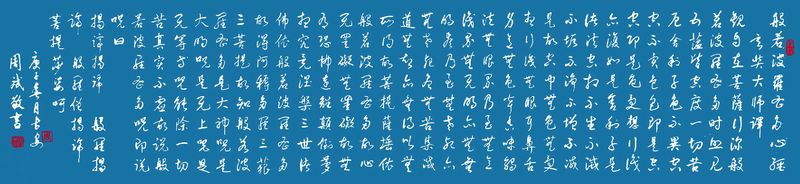 般若波羅蜜多心經
玄奘大師譯
觀自在菩薩行深般
若波羅蜜多時照見
五蘊皆空度一切苦
厄舍利子色不異空
空不異色色即是空
空即是色受想行識
亦復如是舍利子是
諸法空相不生不滅
不垢不淨不增不減
是故空中無色無受
想行識無眼耳鼻舌
身意無色聲香味觸
法無眼界乃至無意
識界無無明亦無無
明盡乃至無老死亦
無老死盡無苦集滅
道無智亦無得以無
所得故菩提薩埵依
般若波羅蜜多故心
無罣礙無罣礙故無
有恐怖遠離顛倒夢
想究竟涅槃三世諸
佛依般若波羅蜜多
故得阿耨多羅三藐
三菩提故知般若波
羅蜜多是大神咒是
大明咒是無上咒是
無等等咒能除一切
苦真實不虛故說般
若波羅蜜多咒即說
咒曰
揭諦揭諦 般羅揭
諦 般羅僧揭諦
菩提薩婆訶
庚子春月長安
周成敏書